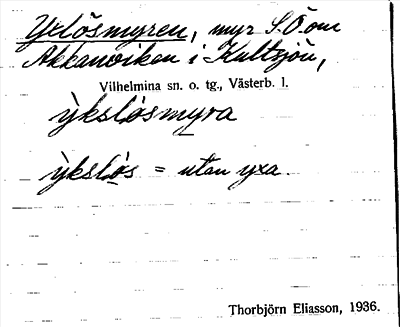 Yxlösmyren, myr S.Ö. om
Akkanviken i Kultsjön,
Vilhelmina sn. o. tg., Västerb. l.
ỳkslösmyra
ỳkslös = utan yxa.
Thorbjörn Eliasson, 1936.